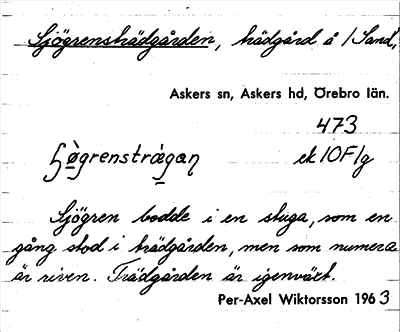 Sjögrensträdgården, trädgård å 1 Sand,
Askers sn, Askers hd, Örebro län.
473
ek 10F1g
Sjögren bodde i en stuga, som en
gång stod i trädgården, men som numera
är riven. Trädgården är igenväxt.
Per-Axel Wiktorsson 1963